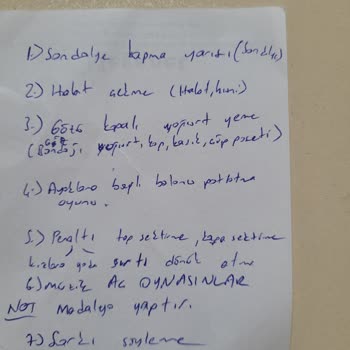 1) Sandalye kapma yarışı (Sandalye)
2.) Halat çekme (Halat, huni)
3.) Gözü kapalı yoğurt yeme
(Göz Bandajı, yoğurt, kap, kaşık, çöp poşeti)
4.) Ayaklara bağlı balonu patlatma
oyunu.
5.) Penaltı top sektirme, kafa sektirme
sırtı dönük atma
6) müzik AÇ OYNASINLAR
NOT Madalya yaptır.
7) Şarkı söyleme